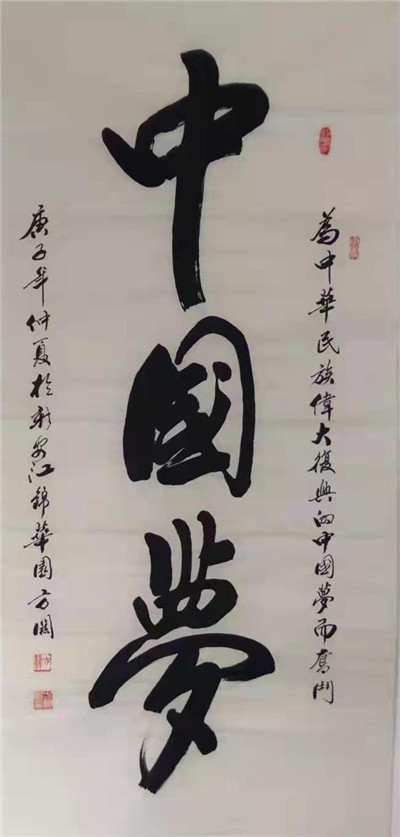 為中華民族偉大復興的中國夢而奮鬥
中國夢
庚子年仲夏於新安江錦華園方闖